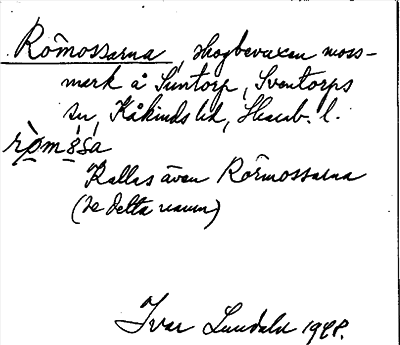 Römossarna, skogbevuxen moss-
mark å Suntorp, Sventorps
sn, Kåkinds hd, Skarab. l.
ròmŝ̩sa
Kallas även Rörmossarna
(se detta namn)
Ivar Lundahl 1948.